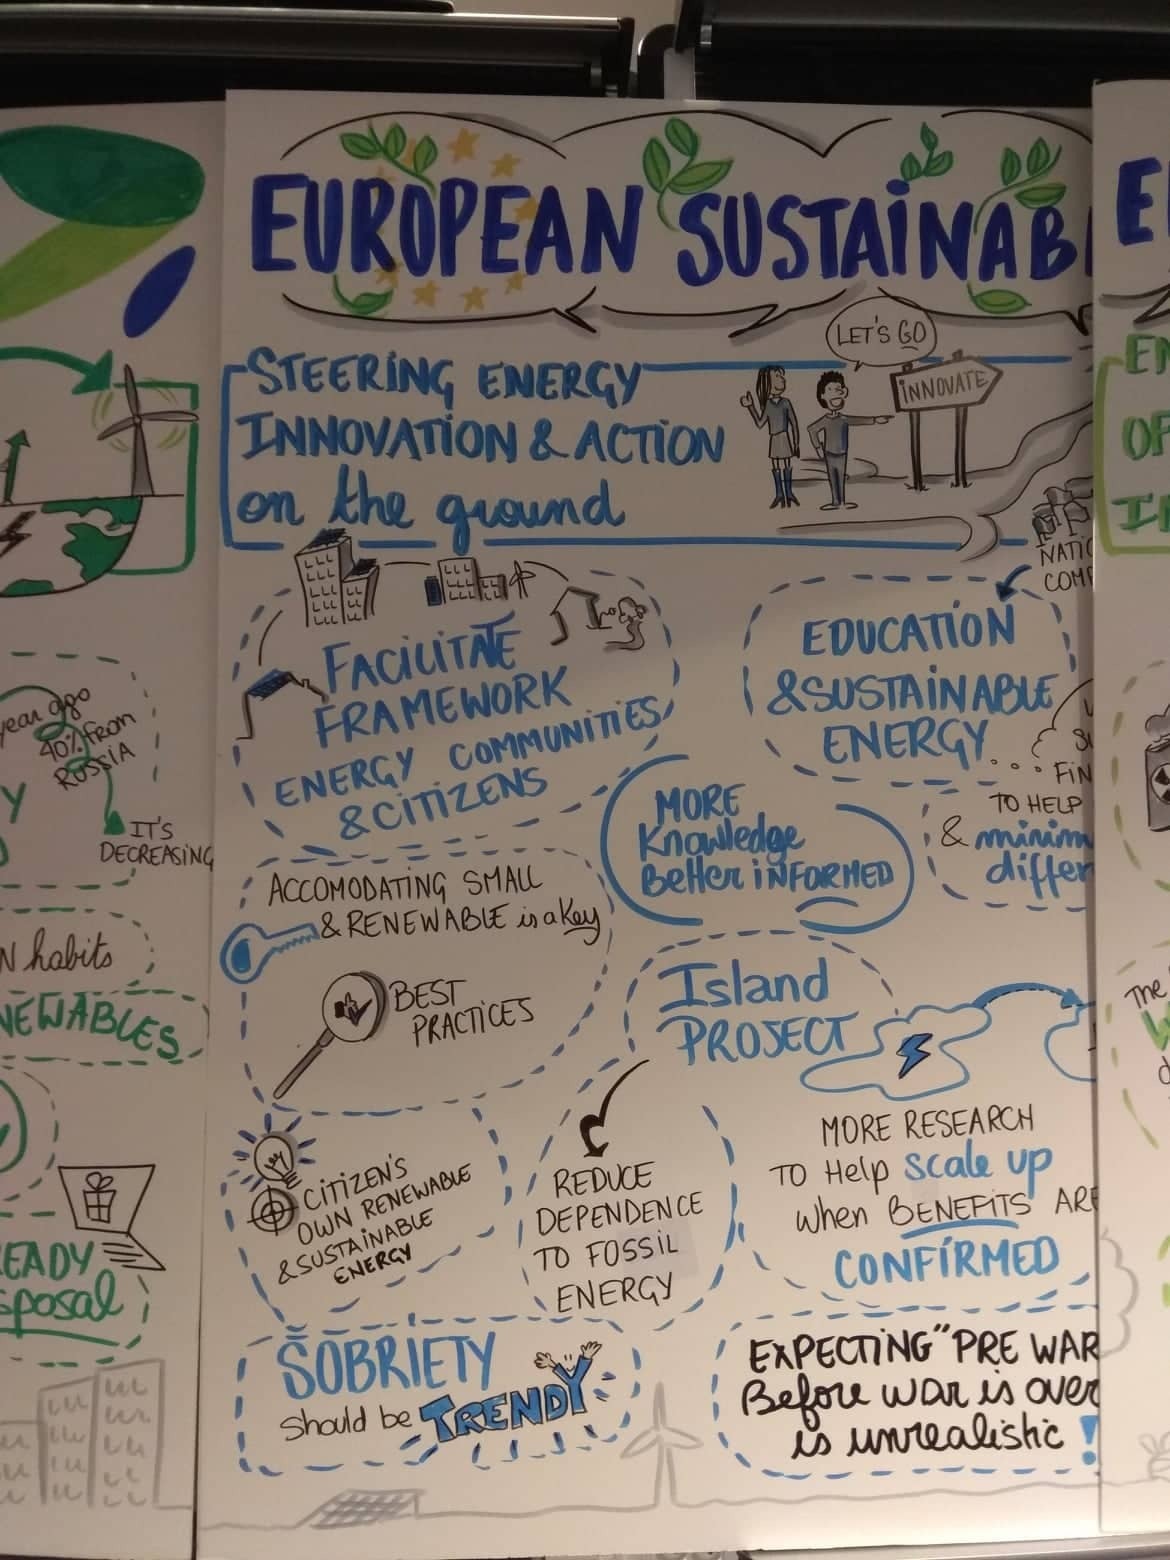 EUROPEAN SUSTAINAB
STEERING ENERGY
INNOVATION & ACTION
on the ground
LET'S GO
INNOVATE
FACILITATE
FRAMEWORK
ENERGY COMMUNITIES
& CITIZENS
NATIO
COMP
EDUCATION
& SUSTAINABLE
ENERGY
FIN
TO HELP
& minim
differ
MORE
Knowledge
Better INFORMED
ACCOMODATING SMALL
& RENEWABLE is a Key
BEST
PRACTICES
Island
PROJECT
MORE RESEARCH
TO Help scale up
when BENEFITS ARE
CONFIRMED
CITIZEN'S
OWN RENEWABLE
& SUSTAINABLE
ENERGY
REDUCE
DEPENDENCE
TO FOSSIL
ENERGY
SOBRIETY
should be TRENDY
EXPECTING "PRE WAR
Before war is over
is unrealistic !
year ago
40% FROM
RUSSIA
Y
IT'S
DECREASING
N habits
NEWABLES
EADY
sposal
E
EN
OP
The